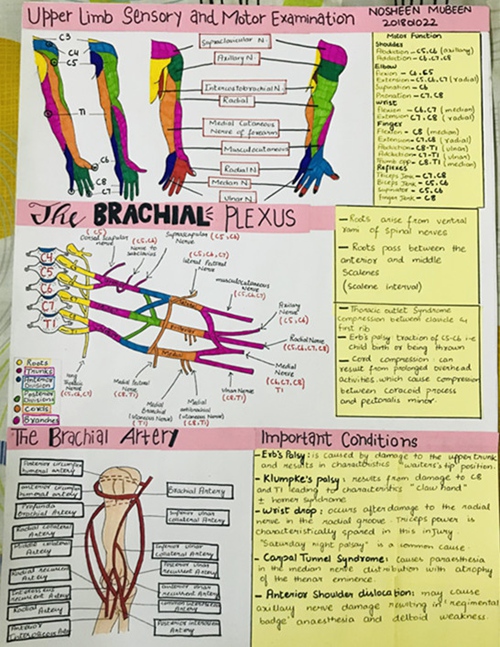 Upper Limb Sensory and Motor Examination
NOSHEEN MUBEEN
201801022
C3
C4
C5
T1
C6
C8
C7
Supraclavicular N.
Axillary N.
Intercostobrachial N.
Radial
Medial Cutaneous
Nerve of forearm
Musculocutaneous
Radial N.
Median N.
Ulnar N.
Motor Function
Shoulder
Abduction - C5,C6 (axillary)
Adduction - C6,C7,C8
Elbow
Extension - C5,C6,C7 (radial)
Supination - C6
Pronation - C7,C8
Wrist
Flexion - C6,C7 (median)
Extension C7,C8 (radial)
Finger
Flexion - C8 (median)
Extension - C7,C8 (radial)
Abduction - C8-T1 (ulnar)
Adduction - C7-T1 (ulnar)
Thumb opp - C8,T1 (median)
Reflexes
Triceps Jerk - C7,C8
Biceps Jerk - C5,C6
Supinator - C5,C6
Finger Jerk - C8
The BRACHIAL PLEXUS
(C5)
Dorsal scapular
nerve
(C5,C6)
Nerve to
subclavius
Suprascapular (C5,C6)
Nerve
(C5,C6,C7)
lateral Pectoral
Nerve
musculocutaneous
Nerve
(C5,C6,C7)
Axillary
Nerve
(C5,C6)
Radial Nerve
(C5,C6,C7,C8,
T1)
Median
Nerve
(C6,C7,C8)
T1
C4
C5
C6
C7
T1
Medial
Roots
Trunks
Anterior
Division
Posterior
Divisions
Cords
Branches
long
thoracic
Nerve
(C5,C6,C7)
Medial Pectoral
Nerve
(C8,T1)
Medial
Brachial
Cutaneous Nerve
(T1)
Medial
Antibrachial
Cutaneous Nerve
(C8,T1)
Ulnar Nerve
(C8,T1)
- Roots arise from ventral
rami of spinal nerves
- Roots pass between the
anterior and middle
Scalenes
(scalene interval)
- Thoracic outlet Syndrome
compression between clavicle &
first rib
- Erb's palsy traction of C5-C6 i.e
child birth or being thrown
- Cord compression: can
result from prolonged overhead
activities which cause compression
between coracoid process
and pectoralis minor.
The Brachial Artery
Posterior circumflex
humeral artery
Anterior circumflex
humeral artery
Profunda
Brachial Artery
Radial collateral
Artery
Middle collateral
Artery
Radial recurrent
Artery
Interosseous
recurrent Artery
Radial
Artery
Anterior
Brachial Artery
Superior ulnar
collateral Artery
Inferior ulnar
Collateral Artery
Posterior ulnar
recurrent Artery
Anterior ulnar
recurrent Artery
Common interosseous
Artery
Posterior interosseous
Artery
Important Conditions
- Erb's Palsy: is caused by damage to the upper trunk
and results in characteristics "waiters tip" position.
- Klumpke's palsy: results from damage to C8
and T1 leading to characteristics "claw hand"
± horner syndrome
- Wrist drop: occurs after damage to the radial
nerve in the radial groove. Triceps power is
characteristically spared in this injury.
"Saturday night palsy" is a common cause.
- Carpal Tunnel Syndrome: causes paraesthesia
in the median nerve distribution with atrophy
of the thenar eminence.
- Anterior Shoulder dislocation: may cause
axillary nerve damage resulting in 'regimental
badge' anaesthesia and deltoid weakness.